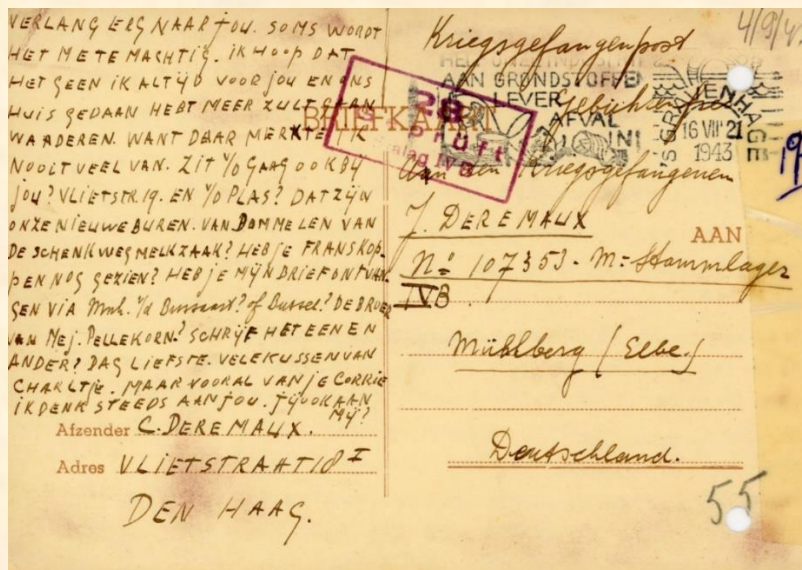 VERLANG ERG NAAR JOU. SOMS WORDT
HET ME TE MACHTIG. IK HOOP DAT
HET GEEN IK ALTIJD VOOR JOU EN ONS
HUIS GEDAAN HEBT MEER ZULT GAAN
WAARDEREN. WANT DAAR MERKTE IK
NOOIT VEEL VAN. ZIT V/D GAAG OOK BIJ
JOU? VLIETSTR. 19. EN V/D PLAS? DAT ZIJN
ONZE NIEUWE BUREN. VAN DOMMELEN VAN
DE SCHENKWEG MELKZAAK? HEB JE FRANS KOP-
PEN NOG GEZIEN? HEB JE MIJN BRIEF ONTVAN-
GEN VIA Mnh. v/d
DE BROER
VAN Mej. PELLEKORN? SCHRIJF HET EEN EN
ANDER? DAG LIEFSTE. VELE KUSSEN VAN
CHARLTJE. MAAR VOORAL VAN JE CORRIE
IK DENK STEEDS AAN JOU. JIJ OOK AAN
MIJ?
Afzender C. DEREMAUX.
Adres VLIETSTRAAT 18 I
DEN HAAG.
BRIEFKAART
28
Geprüft
Stalag IVB
4/9/4
Kriegsgefangenpost
AAN GRONDSTOFFEN
LEVER
AFVAL
IN!
'S GRAVENHAGE
16 VII 21
1943
Gebührenfrei
19
Aan den Kriegsgefangenen
J. DEREMAUX
AAN
No 107353 - M= Stammlager
IVB
Mühlberg (Elbe)
Deutschland.
55